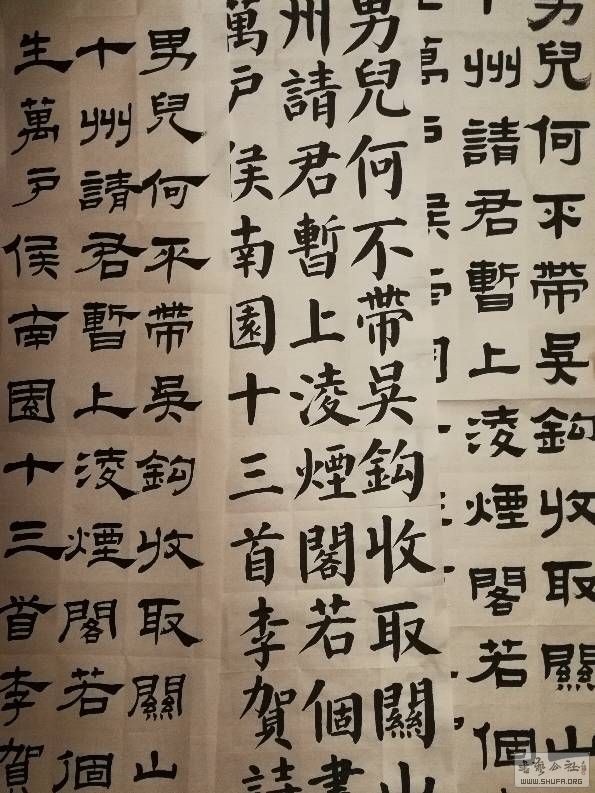 男兒何不帶吳鈎收取關山
十州請君暫上淩煙閣若個
男兒何不帶吳鈎收取關山
州請君暫上淩煙閣若個書
萬戶侯南園十三首李賀詩
男兒何不帶吳鈎收取關山
十州請君暫上淩煙閣若個
生萬戶侯南園十三首李賀
书艺公社
WWW.SHUFA.ORG